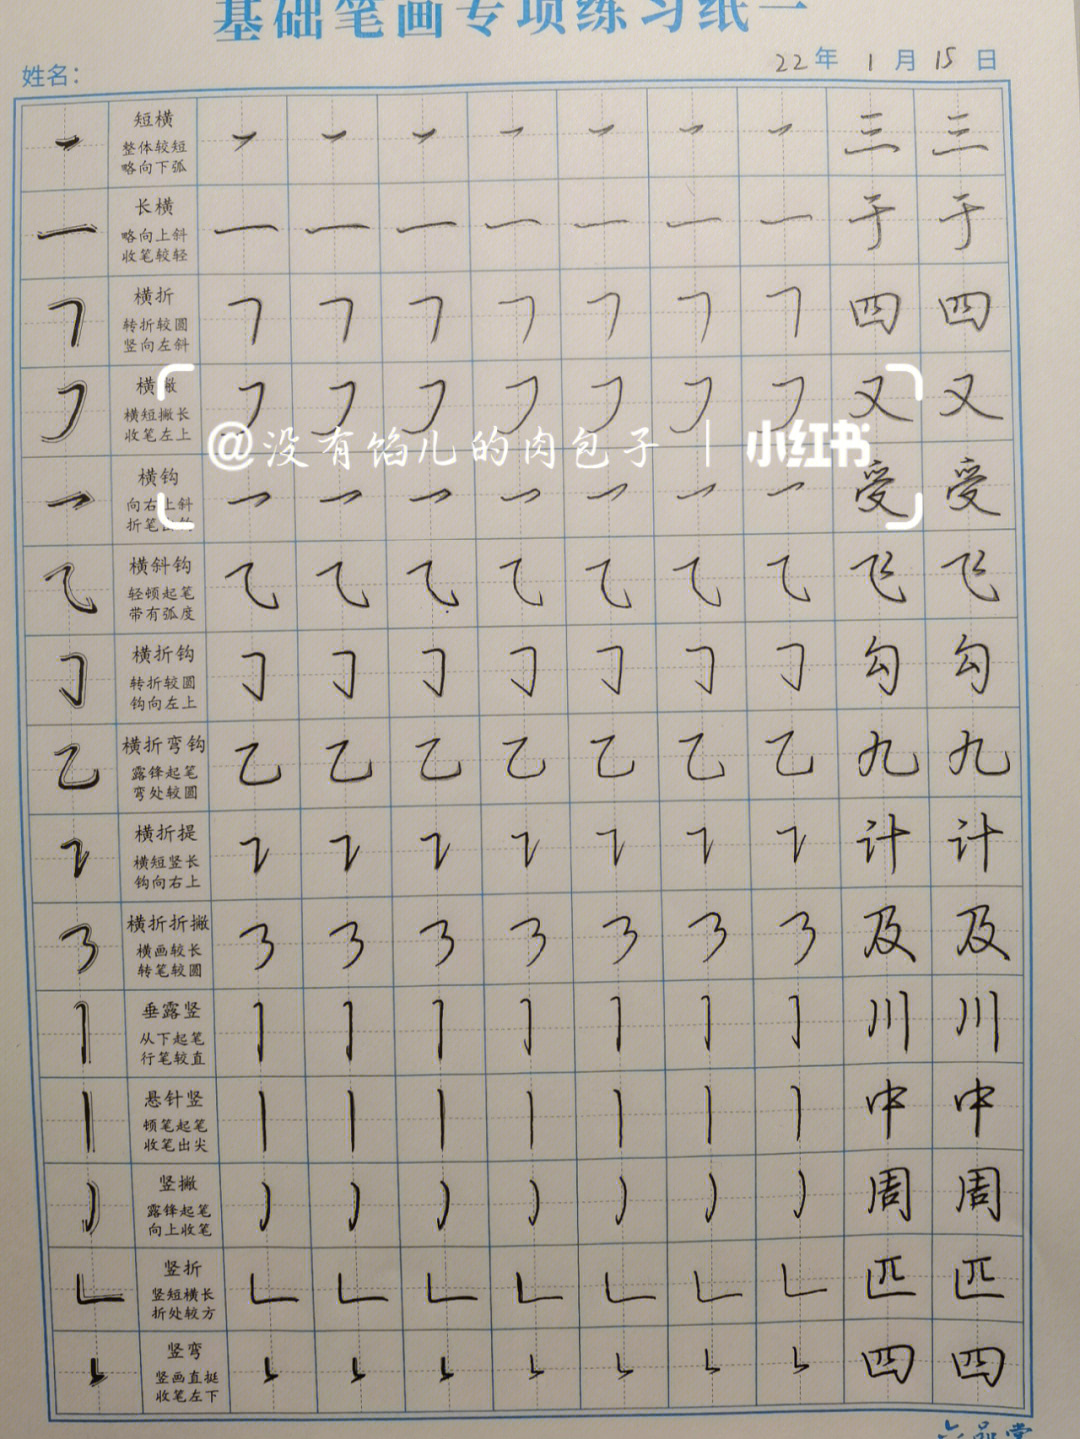 基础笔画专项练习纸一
姓名: 22年 1月 15日
短横
整体较短
略向下弧
三 三
长横
略向上斜
收笔较轻
于 于
横折
转折较圆
竖向左斜
四 四
横撇
横短撇长
收笔左上
又 又
@没有馅儿的肉包子 | 小红书
横钩
向右上斜
折笔出钩
受 受
横斜钩
轻顿起笔
带有弧度
飞 飞
横折钩
转折较圆
钩向左上
勾 勾
横折弯钩
露锋起笔
弯处较圆
九 九
横折提
横短竖长
钩向右上
计 计
横折折撇
横画较长
转笔较圆
及 及
垂露竖
从下起笔
行笔较直
川 川
悬针竖
顿笔起笔
收笔出尖
中 中
竖撇
露锋起笔
向上收笔
周 周
竖折
竖短横长
折处较方
匹 匹
竖弯
竖画直挺
收笔左下
四 四
六品堂